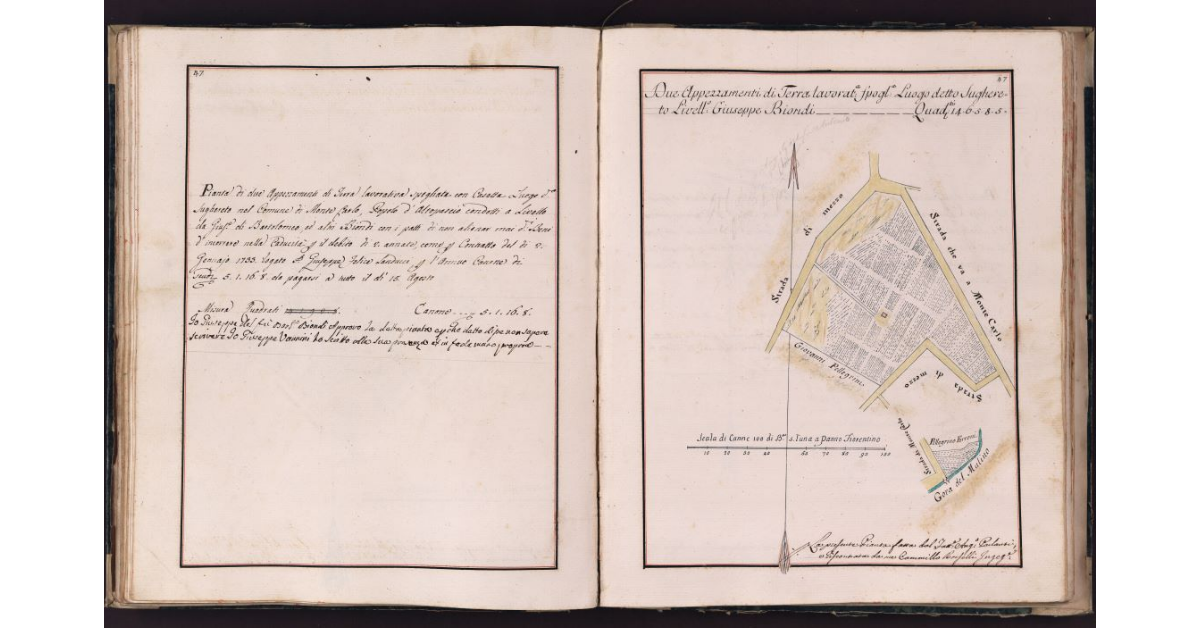 47
Pianta di due Appezzamenti di Terra lavorativa spogliata con Casetta Luogo d.º
Sughereto nel Comune di Monte Carlo, Popolo d'Altopascio condotti a Livello
da Gius.e di Bartolomeo, ed altri Biondi con i patti di non alienar mai d.i Beni
d'incorrere nella Caducità p il debito di 2. annate, come p Contratto del di 2.
Gennajo 1783. rogato S. Giuseppe Felice p l'Annuo Canone di
Scudi 5. 1. 16. 8. da pagarsi a tutto il di 15. Agosto
Misura Quadrati Canone 5. 1. 16. 8.
Io Giuseppe del fu Bart.º Biondi Approvo la detta pianta e p che detto disse non sapere
scrivere Io Giuseppe Vannini ho scritto alla sua presenza et in fede mano propria
47
Due Appezzamenti di Terra lavorat.a spogl.a Luogo detto Sughere-
to Livell.º Giuseppe Biondi Quad.ti 14. 6. 5. 8. 5.
Strada di mezzo
Strada che va a Monte Carlo
Giovanni Pellegrini
Strada di mezzo
Strada di Monte Carlo
Pellegrino
Gora del Molino
Scala di Canne 100 di B.a 5. l'una a panno Fiorentino
10 20 30 40 60 70 80 90 100
La presente Pianta fatta dal
e da me Cammillo